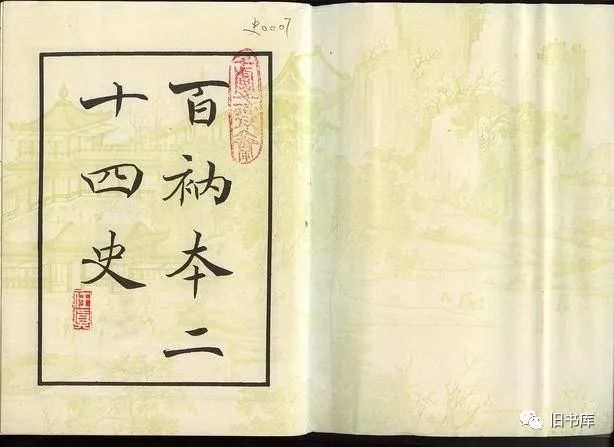 史0007
百衲本二
十四史
旧书库